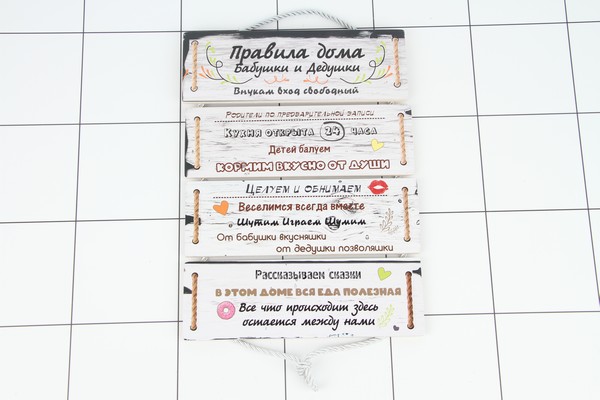 Правила дома
Бабушки и Дедушки
Внукам вход свободный
Родители по предварительной записи
Кухня открыта 24 часа
Детей балуем
КОРМИМ ВКУСНО ОТ ДУШИ
Целуем и обнимаем
Веселимся всегда вместе
Шутим Играем Шумим
От бабушки вкусняшки
от дедушки позволяшки
Рассказываем сказки
В ЭТОМ ДОМЕ ВСЯ ЕДА ПОЛЕЗНАЯ
Все что происходит здесь
остается между нами